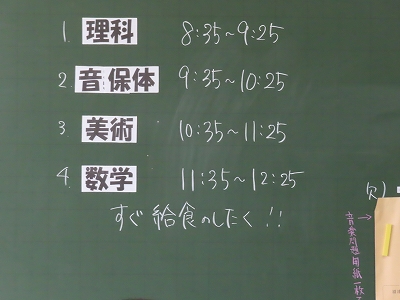 1. 理科 8:35~9:25
2. 音・保体 9:35~10:25
3. 美術 10:35~11:25
4. 数学 11:35~12:25
すぐ給食のしたく!!
欠)
音楽問題用紙一枚